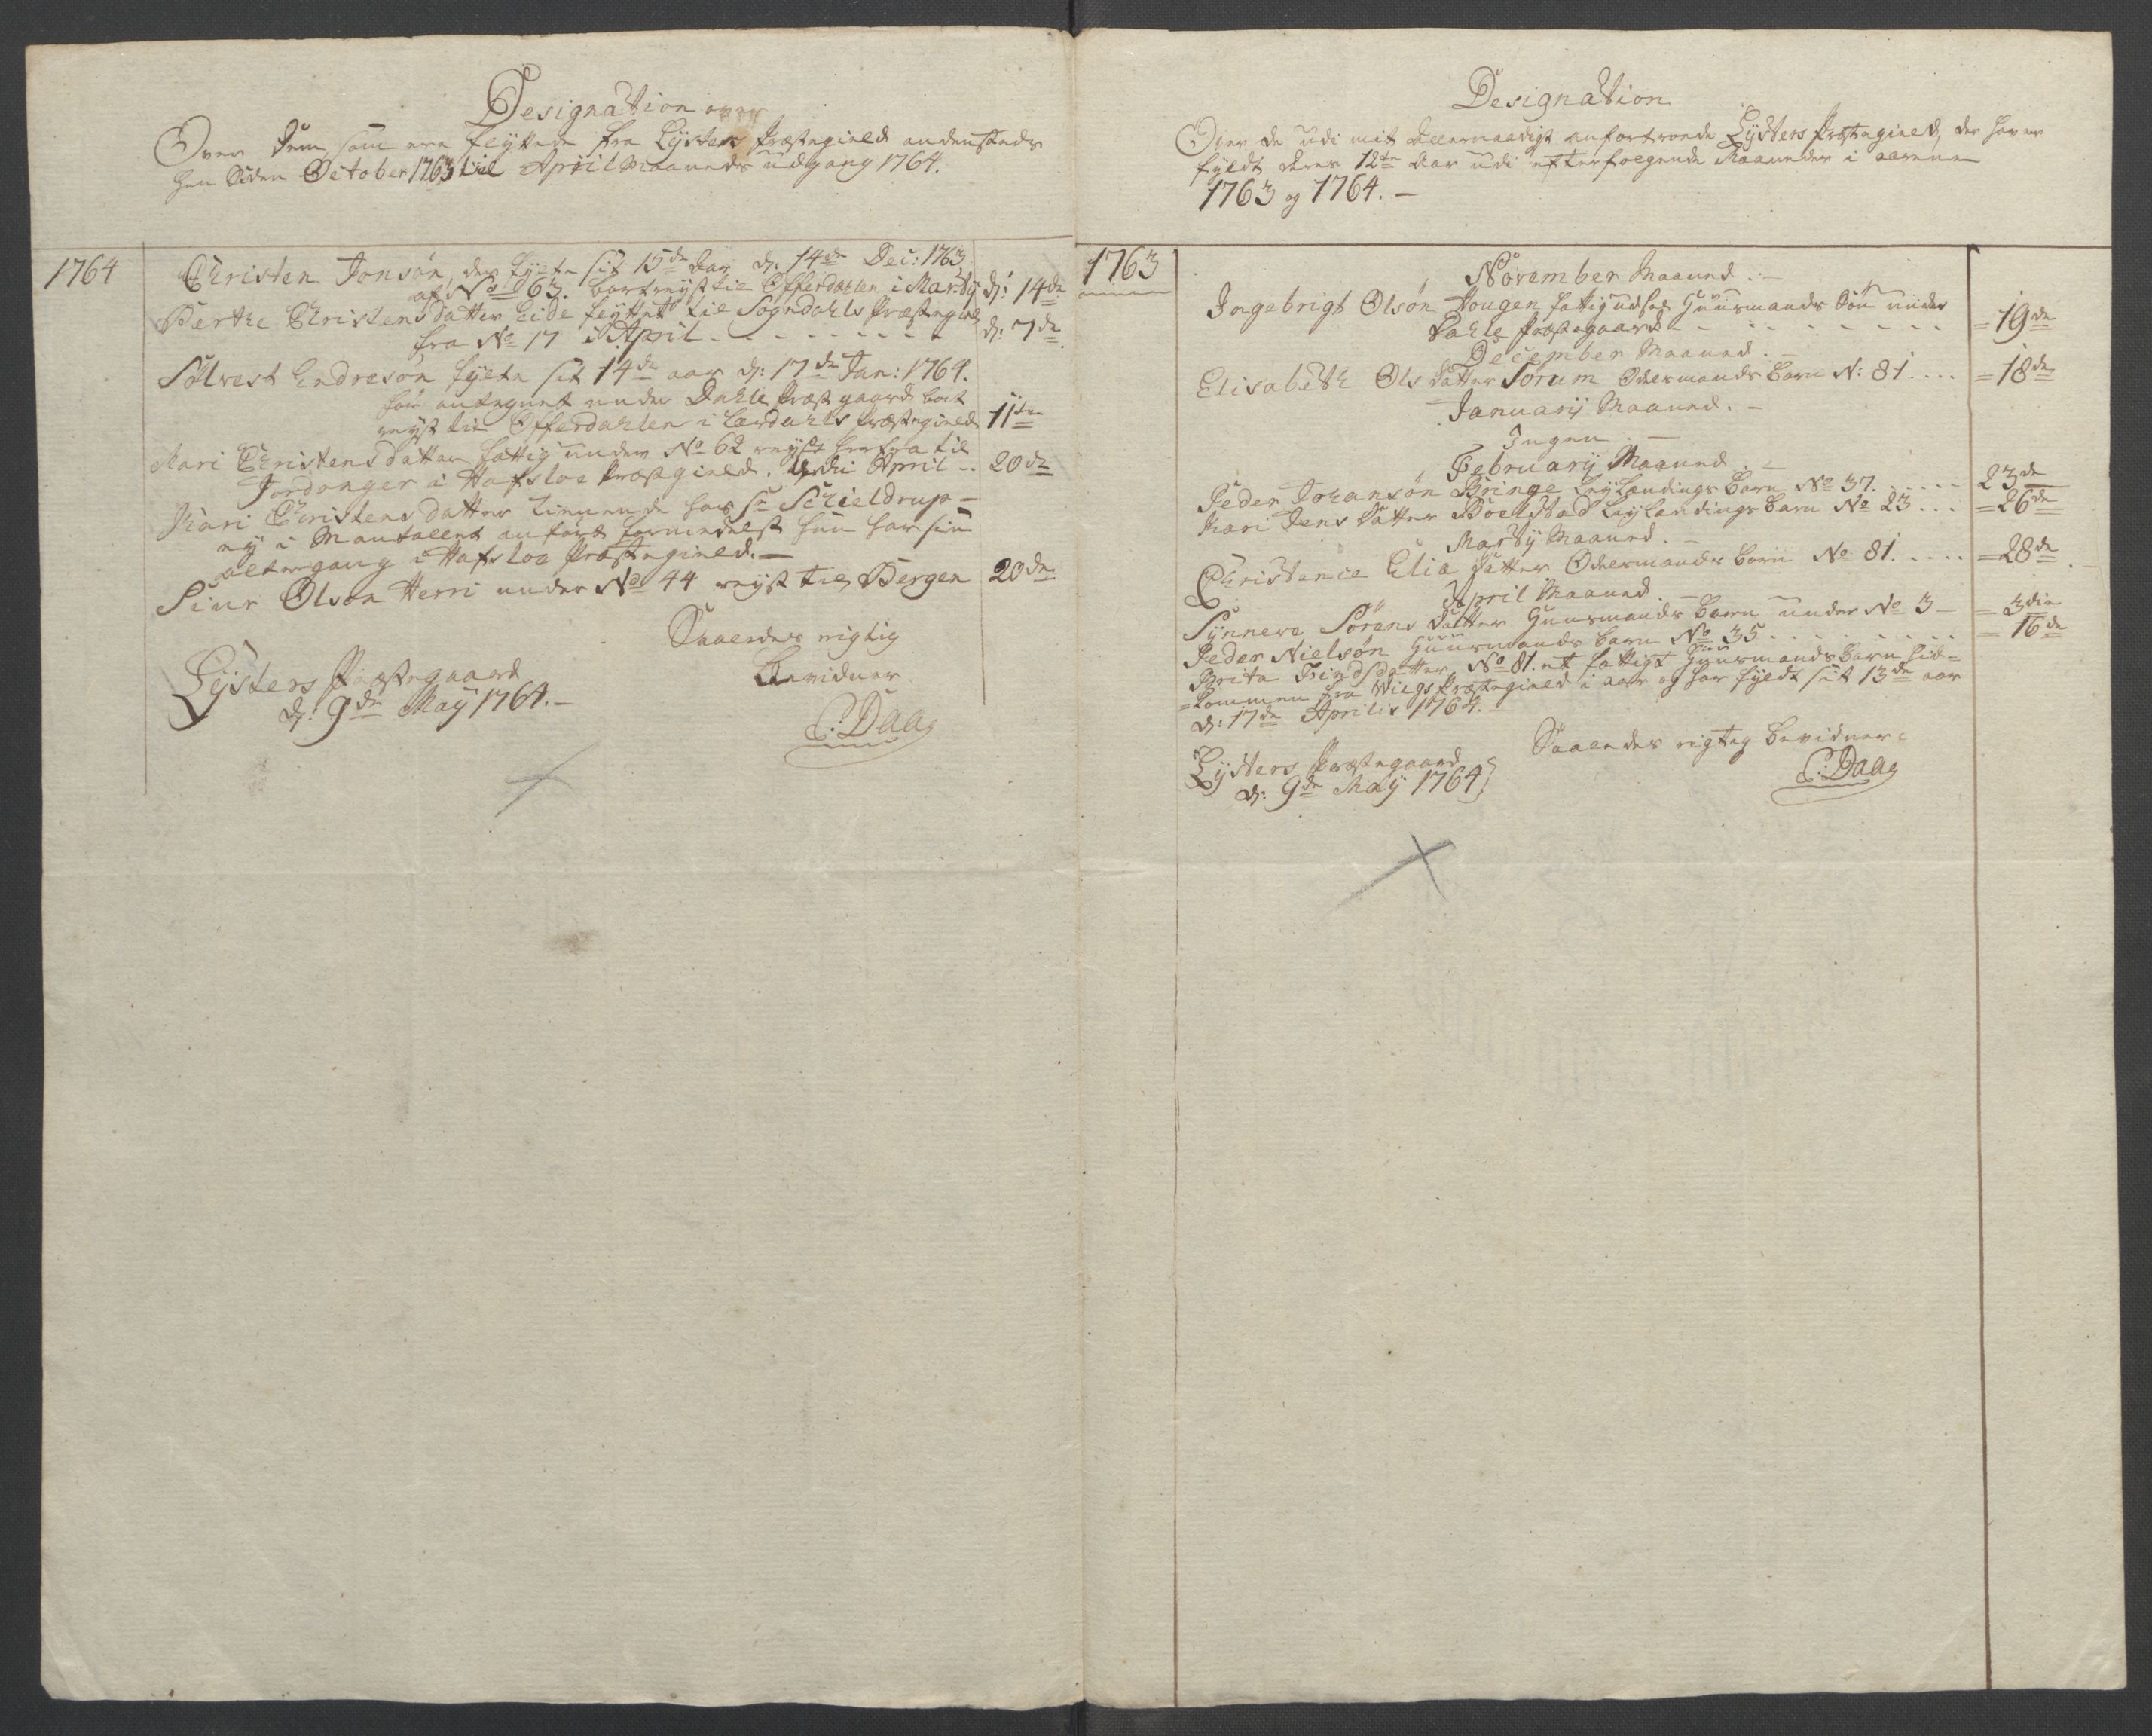 Designation over
Over Dem, som ere fløttede fra Lysters Præstegield andenstæds
hen siden October 1763 til April Maaneds udgang 1764.
1764
Christen Jonsøn, der fylte sit 15de Aar d: 14de Dec: 1763
af No 63. bortreyst til Offerdahlen i Martij d: 14de
Berthe Christensdatter Eide fløttet til Sogndahls Præstegield
fra No 17 i April - - - - - - - - d: 7de
Sølvest Endresøn fylte sit 14de aar d: 17de Jan: 1764.
før antegnet under Dahle Præstgaard bort
reyst til Offerdahlen i Lærdahls Præstegield 11te
Kari Christensdatter fattig under No 62 reyst herfra til
Jordanger i Hafsloe Præstgield. Udi April .. 20de
Kari Christensdatter tienende hos Sr Schieldrup -
ey i Mantallet anført formedelst hun har sin
altergang i Hafsloe Præstegield. -
Siur Olsøn Herri under No 44 reyst til Bergen 20de
Saaledes rigtig
Bevidner
Lysters Præstegaard
d: 9de May 1764. -
C: Daae
Designation
Over de udi mit Allernaadigst anfortroede Lysters Præstegield, der haver
fyldt deres 12te Aar udi efterfølgende Maaneder i aarene
1763 og 1764. -
1763
November Maaned. -
Ingebrigt Olsøn Hougen fattig Huusmands Søn under
Dahle Præstegaard - - - - - - - - = 19de
December Maaned. -
Elisabeth Olsdatter Sorum Odelsmands Barn N: 81 .... = 18de
Januarij Maaned. -
Ingen. -
Februarij Maaned -
Peder Johansøn Bringe Leylændings Barn No 37. ..... 23de
Kari Jensdatter Bollstad Leylændings Barn No 23 ... = 26de
Martij Maaned. -
Christence Eliædatter Odelsmands Barn No 81. .... = 28de
April Maaned. -
Synneve Sørensdatter Huusmands Barn under No 3 - = 3die
Peder Nielsøn Huusmands Barn No 35 ........ = 16de
Brita Findsdatter, No 81. et fattigt Huusmands Barn hid=
=kommen fra Wiigs Præstegield i aar og har fyldt sit 13de aar
d: 17de Aprilis 1764.
Saaledes rigtig Bevidner
Lysters Præstegaard
d: 9de May 1764
C: Daae